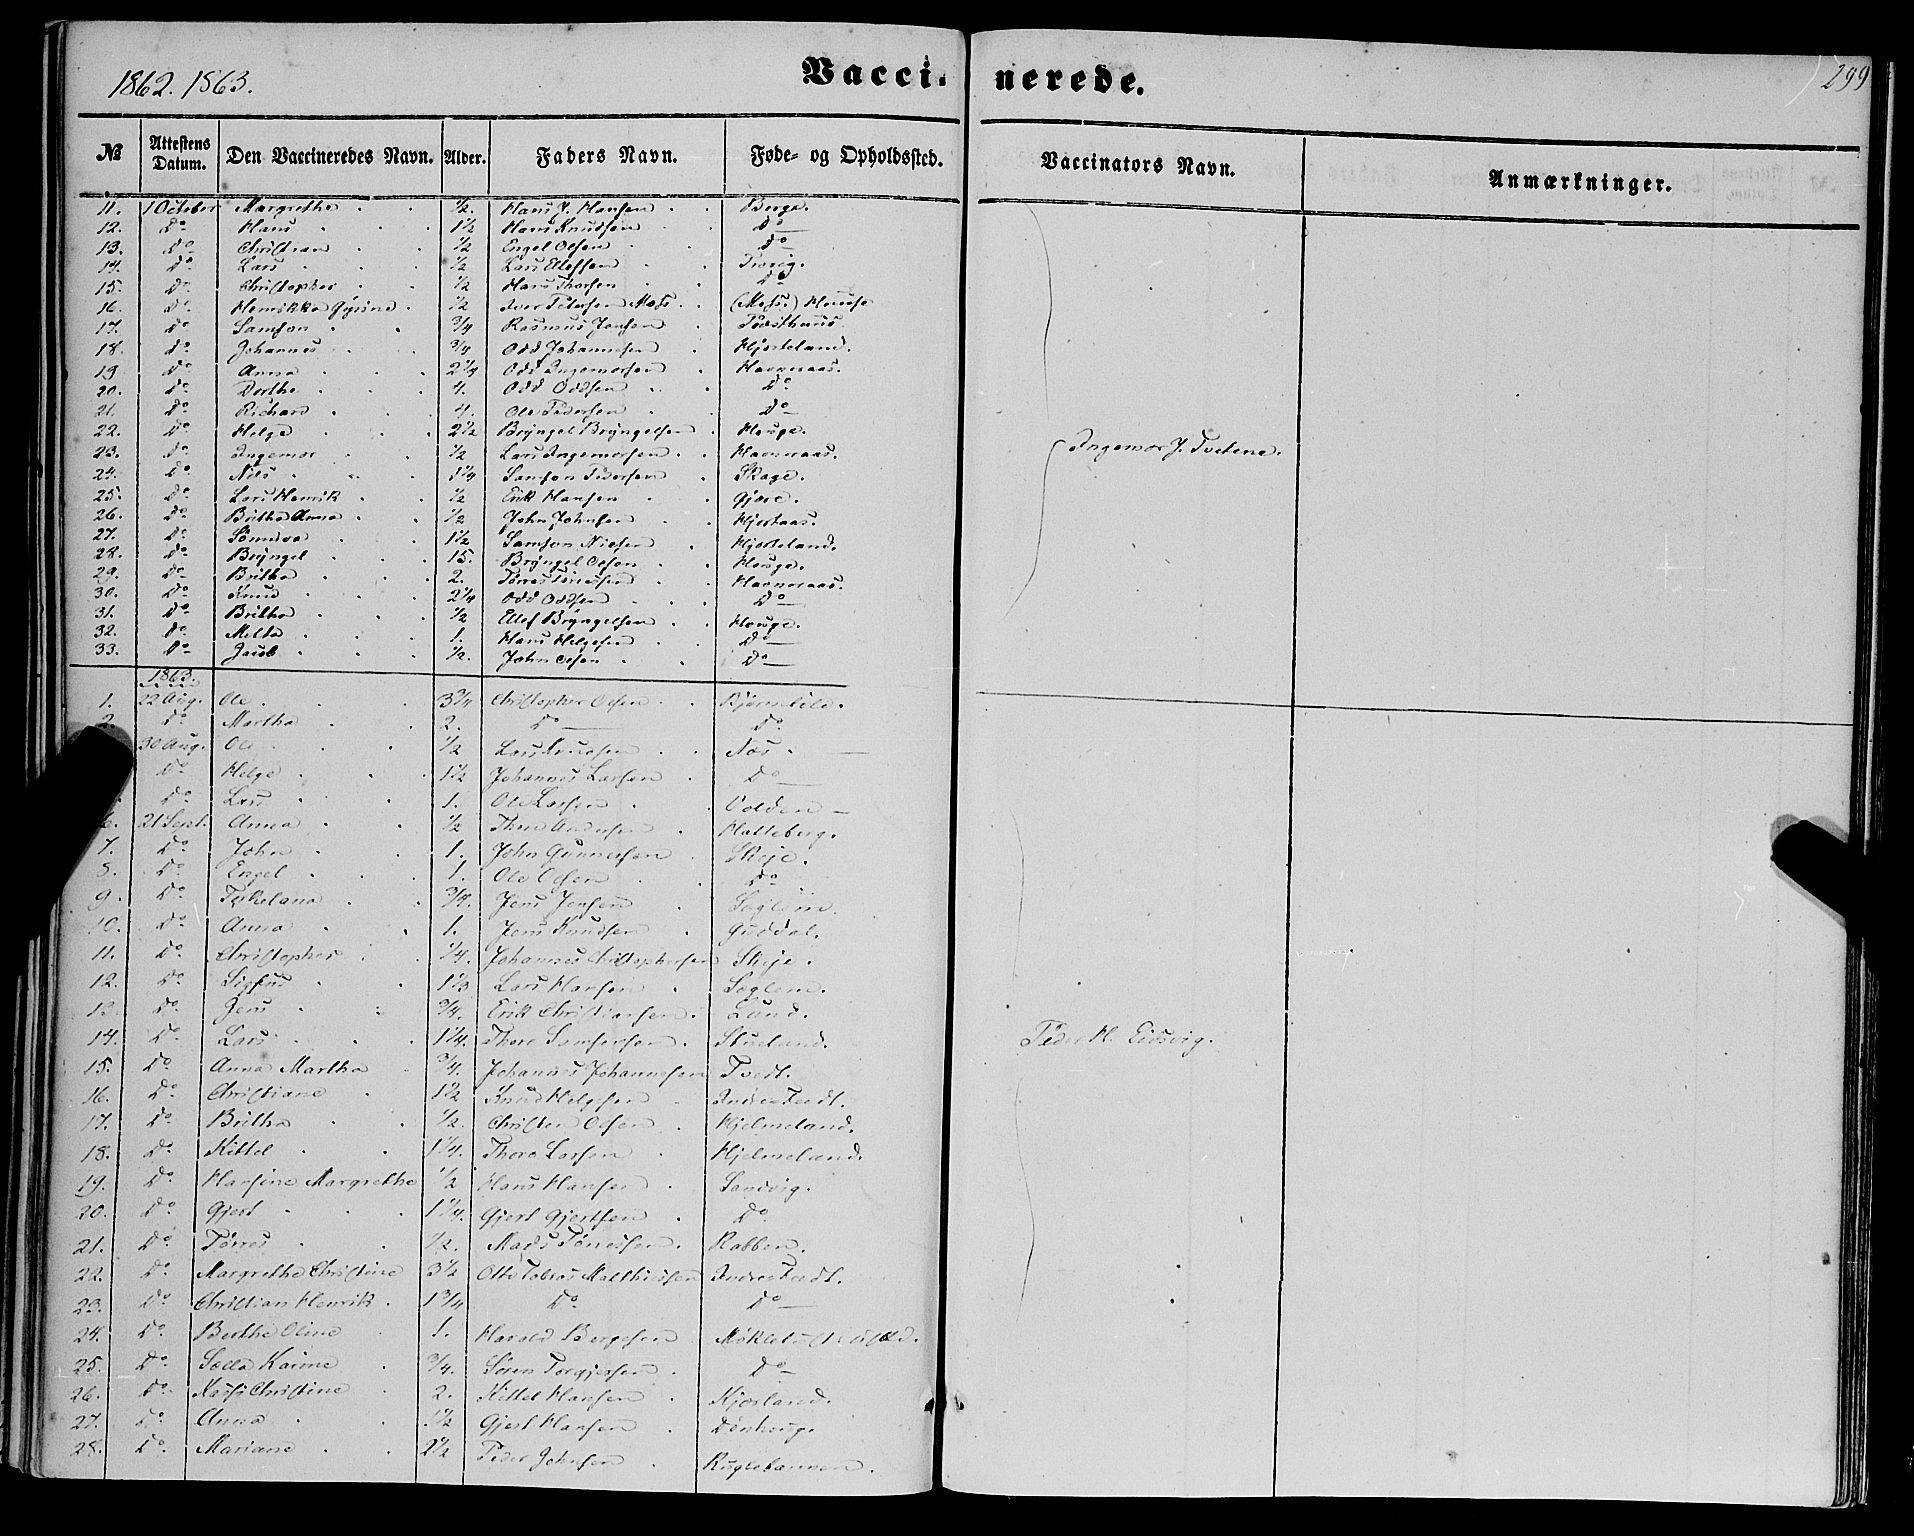 1862. 1863.
Vaccinerede.
299
№ Attestens Datum. Den Vaccineredes Navn. Alder. Faders Navn. Føde- og Opholdssted. Vaccinators Navn. Anmærkninger.
11. 1 October Margrethe ½. Hans J. Hansen Berge.
12. Do Hans 1½ Hans Knudsen Do
13. Do Christian ½ Engel Olsen Do
14. Do Lars ½ Lars Ellefsen
15. Do Christopher ½ Hans Thorsen Do
16. Do ½ Iver Pedersen
17. Do Samson ¾ Rasmus Jensen
18. Do Johannes ¾ Odd Johannesen Hjorteland.
19 Do Anna 2¼ Odd Ingemorsen Havneraas.
20. Do Dorthe 4. Odd Oddsen Do
21. Do Richard 4. Ole Pedersen Do
22. Do Helge 2½ Bryngel Bryngelsen Houge.
23. Do Ingemor ½ Lars Ingemorsen Havneraas.
24. Do Nils 1¼ Samson Pedersen Skage.
25. Do Lars Henrik ½ Erik Hansen Gjære.
26. Do Britha Anna ½ John Johnsen Hjortaas.
27. Do 1½ Samson Nielsen Hjorteland.
28. Do Bryngel 15. Bryngel Olsen Houge.
29. Do Britha 2. Tørres Tørressen Havneraas.
30. Do Knud 2¼ Odd Oddsen Do
31. Do Britha ½ Ellef Bryngelsen Houge.
32. Do Metta 1. Hans Helgesen Do
33. Do Jacob ½. John Olsen Do
Ingemor J. Tvetene.
1863.
1. 22 Aug. Ole 3¾ Christopher Olsen
2. Do Martha 2. Do Do
30 Aug. Ole ½ Lars Knudsen Næs
Do Helge 1½ Johannes Larsen Do
Do Lars 1. Ole Larsen Volden
6. 21 Sept. Anna ½ Thore Andersen Hatteberg.
7. Do John 1. John Gunnersen Skeje.
8. Do Engel 1. Ole Olsen Do
9. Do ¾. Jens Jensen
10. Do Anna 1. Jens Knudsen Guddal.
11. Do Christopher ¼. Johannes Christophersen Skeje.
12. Do 1⅓ Lars Hansen
13. Do Jens ¾. Erik Christiansen. Lund.
14. Do Lars 1¼. Thore
15. Do Anna Martha ¾. Johannes Johannesen Tvedt.
16. Do Christiane 1½ Knud Helgesen Indre Tvedt.
17. Do Britha ½. Christen Olsen Hjelmeland.
18. Do Kittel 1¼. Thore Larsen Hjelmeland.
19. Do Hansine Margrethe ½ Hans Hansen Sandvig.
20. Do Gjert 1¼. Gjert Gjertsen Do
21. Do Tørres ½. Mads Tørressen. Rabben.
22. Do Margrethe Christine 3½ Otto Tobias Matthiessen Indre Tvedt.
23. Do Christian Henrik. 1¾ Do Do
24. Do Berthe Oline 1. Harald Bergesen
25. Do Karine ¾. Søren Torgjersen Do
26. Do Christine 2. Kittel Hansen
27. Do Anna 1½ Gjert Hansen
28. Do Mariane 2½ Peder Johnsen
Peder H. Eidsvig.